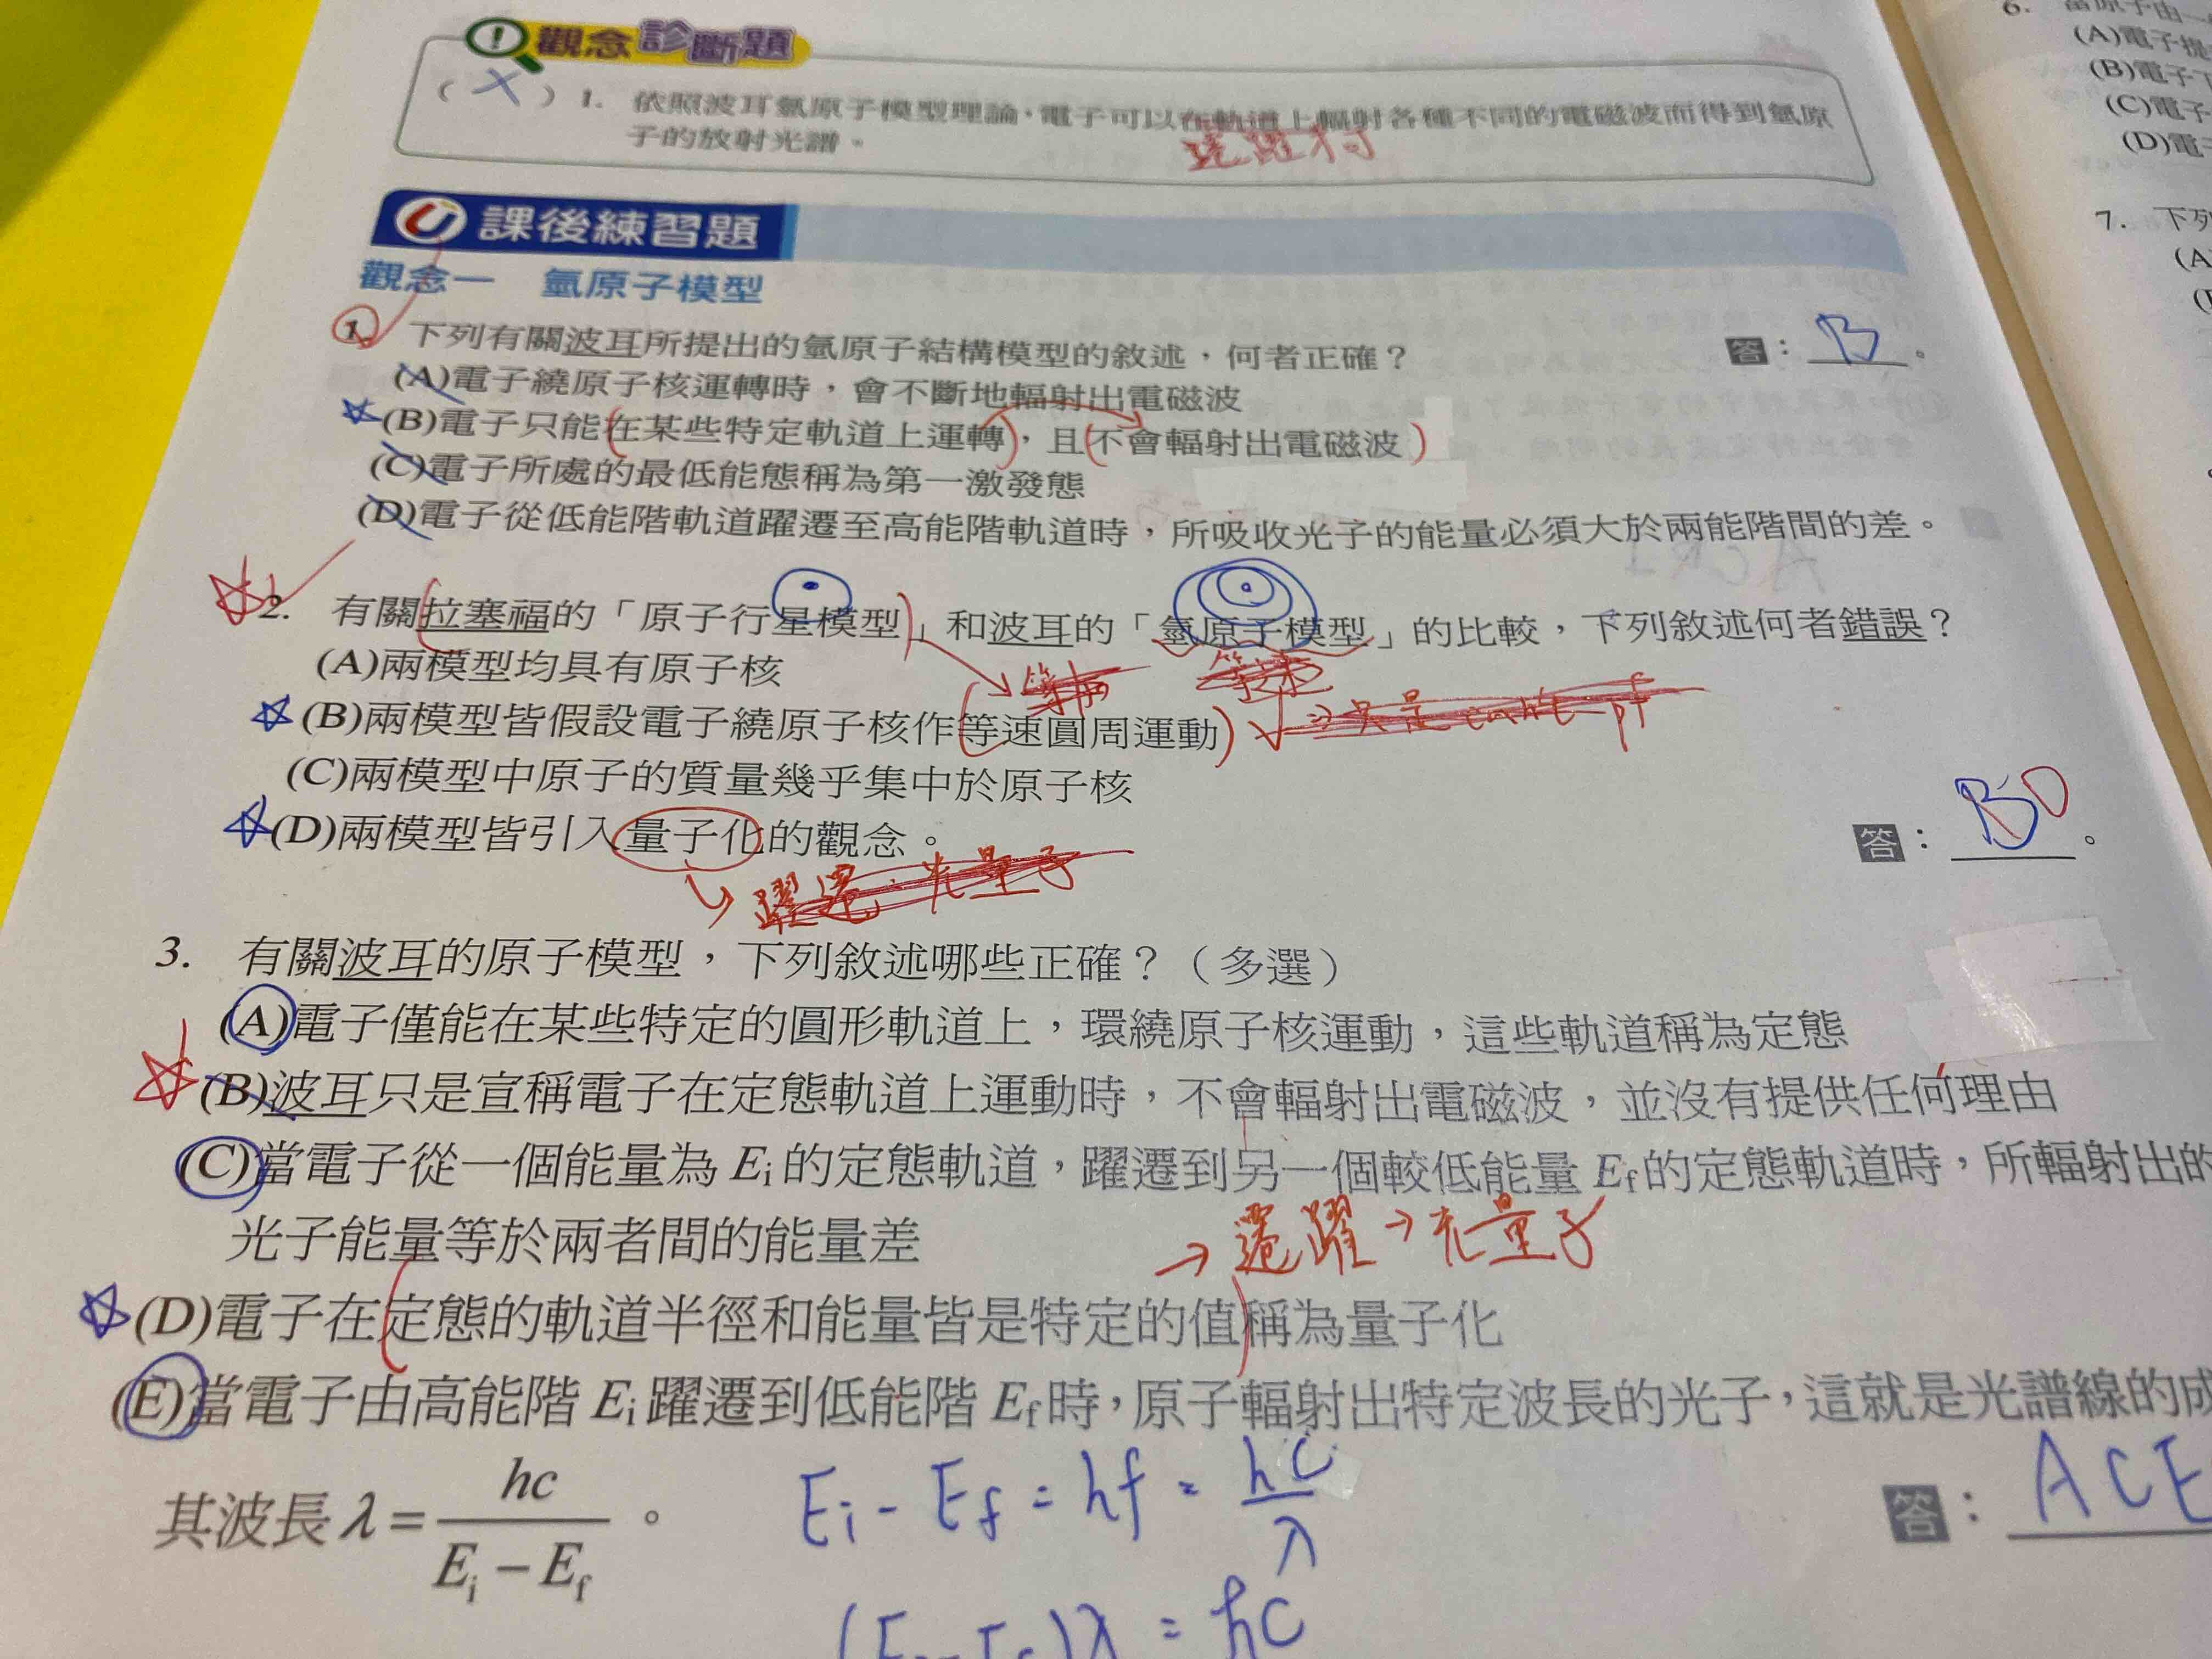 觀念診斷題
( X ) 1. 依照波耳氫原子模型理論，電子可以在軌道上輻射各種不同的電磁波而得到氫原
子的放射光譜。
課後練習題
觀念一 氫原子模型
1. 下列有關波耳所提出的氫原子結構模型的敘述，何者正確？ 答：B。
(A)電子繞原子核運轉時，會不斷地輻射出電磁波
(B)電子只能在某些特定軌道上運轉，且不會輻射出電磁波
(C)電子所處的最低能態稱為第一激發態
(D)電子從低能階軌道躍遷至高能階軌道時，所吸收光子的能量必須大於兩能階間的差。
2. 有關拉塞福的「原子行星模型」和波耳的「氫原子模型」的比較，下列敘述何者錯誤？
(A)兩模型均具有原子核
(B)兩模型皆假設電子繞原子核作等速圓周運動
(C)兩模型中原子的質量幾乎集中於原子核
(D)兩模型皆引入量子化的觀念。 答：BD。
躍遷 光量子
3. 有關波耳的原子模型，下列敘述哪些正確？（多選）
(A)電子僅能在某些特定的圓形軌道上，環繞原子核運動，這些軌道稱為定態
(B)波耳只是宣稱電子在定態軌道上運動時，不會輻射出電磁波，並沒有提供任何理由
(C)當電子從一個能量為 Ei 的定態軌道，躍遷到另一個較低能量 Ef 的定態軌道時，所輻射出的
光子能量等於兩者間的能量差
→ 遷躍 → 光量子
(D)電子在定態的軌道半徑和能量皆是特定的值稱為量子化
(E)當電子由高能階 Ei 躍遷到低能階 Ef 時，原子輻射出特定波長的光子，這就是光譜線的成
其波長 λ = hc / (Ei − Ef)。
Ei - Ef = hf = hc / λ
答：ACE
6. 當原子由一
(A)電子提
(B)電子
(C)電子
(D)電子
7. 下列
(A